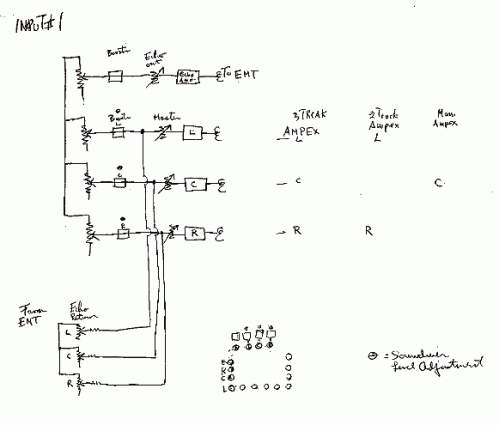 INPUT #1
Booster
Echo out
Echo Amp
To EMT
Booster
L
Master
L
3 TRCAK
AMPEX
2 Track
Ampex
Mono
Ampex
L
L
C
C
C
C
R
R
R
R
From
EMT
Echo
Return
L
C
R
R
C
L
= Screwdriver
Level Adjustment